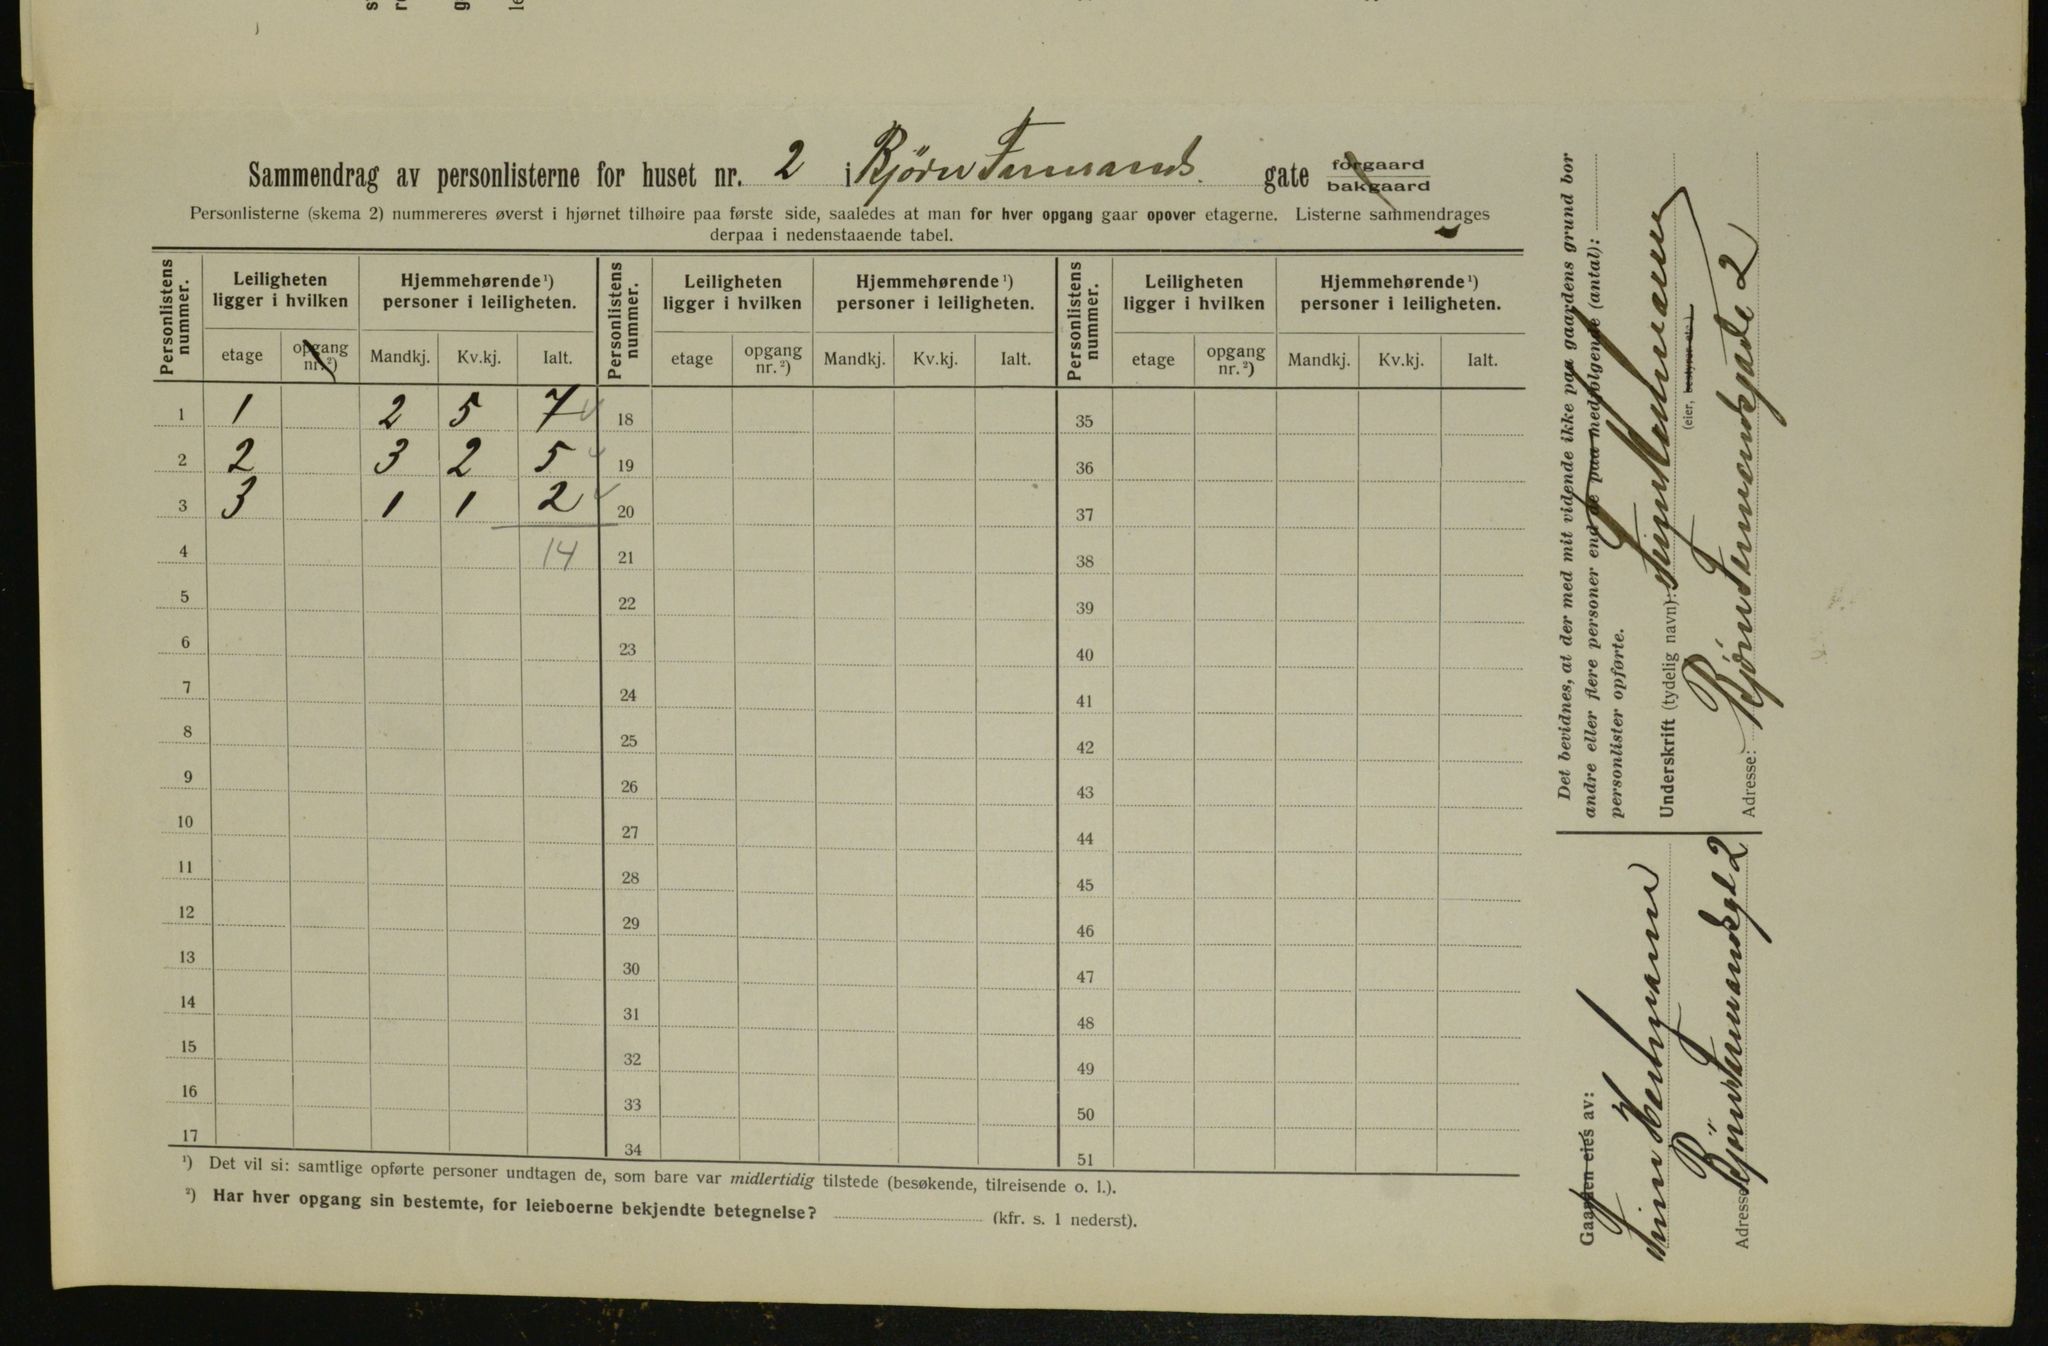 Sammendrag av personlisterne for huset nr. 2 i Bjørn Farmands gate forgaard bakgaard
Personlisterne (skema 2) nummereres øverst i hjørnet tilhøire paa første side, saaledes at man for hver opgang gaar opover etagerne. Listerne sammendrages
derpaa i nedenstaaende tabel.
Personlistens nummer. Leiligheten ligger i hvilken Hjemmehørende ¹) personer i leiligheten. Personlistens nummer. Leiligheten ligger i hvilken Hjemmehørende ¹) personer i leiligheten. Personlistens nummer. Leiligheten ligger i hvilken Hjemmehørende ¹) personer i leiligheten.
etage opgang nr. ²) Mandkj. Kv.kj. Ialt. etage opgang nr. ²) Mandkj. Kv.kj. Ialt. etage opgang nr. ²) Mandkj. Kv.kj. Ialt.
1 1 2 5 7 18 35
2 2 3 2 5 19 36
3 3 1 1 2 20 37
4 14 21 38
5 22 39
6 23 40
7 24 41
8 25 42
9 26 43
10 27 44
11 28 45
12 29 46
13 30 47
14 31 48
15 32 49
16 33 50
17 34 51
¹) Det vil si: samtlige opførte personer undtagen de, som bare var midlertidig tilstede (besøkende, tilreisende o. l.).
²) Har hver opgang sin bestemte, for leieboerne bekjendte betegnelse? (kfr. s. 1 nederst).
Det bevidnes, at der med mit vidende ikke paa gaardens grund bor
andre eller flere personer end de paa medfølgende (antal):
personlister opførte.
Underskrift (tydelig navn):
(eier, bestyrer etc.)
Adresse: Bjørn Farmandsgade 2
Gaarden eies av:
Adresse: Bjørn Farmandsgd 2